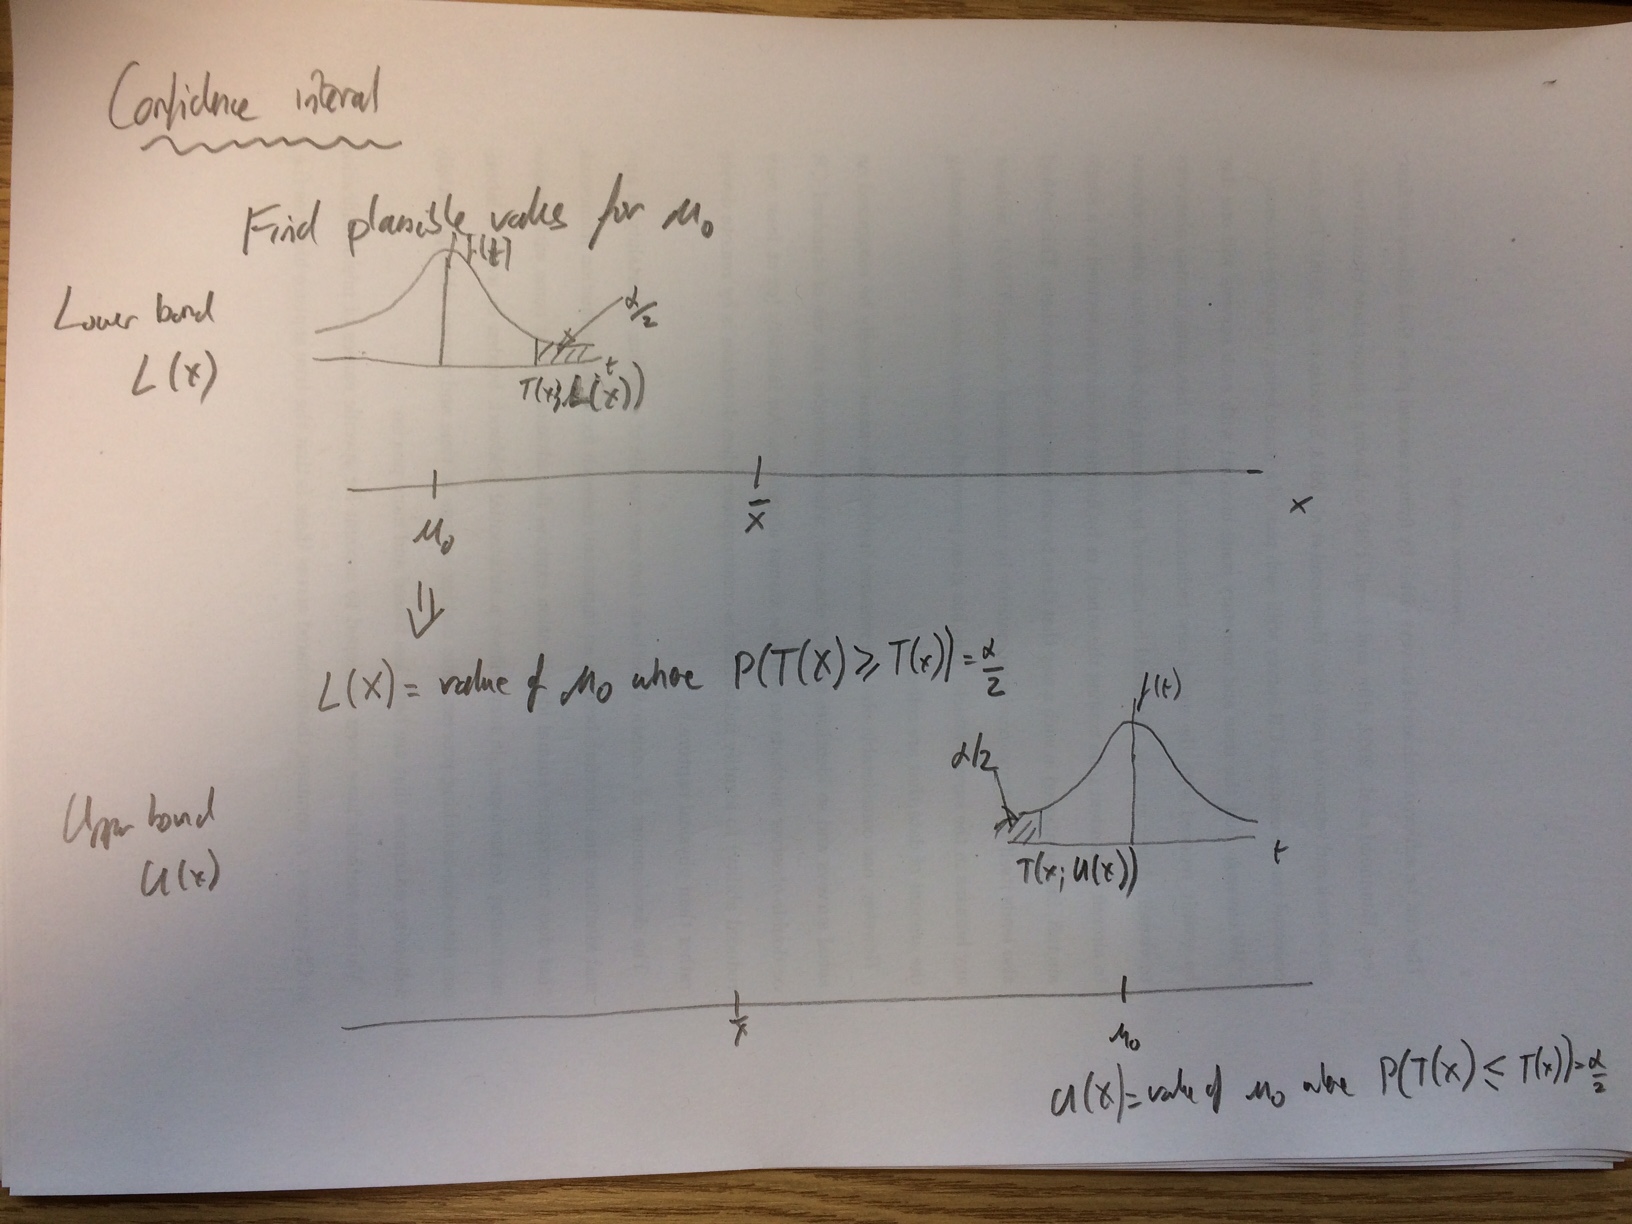 Confidence interal
Find plausible values for μ₀
f(t)
Lower bound
L(x)
α/2
t
T(x; L(x))
μ₀
x̄
x
⇓
L(X) = value of μ₀ where P(T(X) ⩾ T(x)) = α/2
f(t)
α/2
Upper bound
U(x)
t
T(x; U(x))
x̄
μ₀
U(X) = value of μ₀ where P(T(X) ≤ T(x)) = α/2